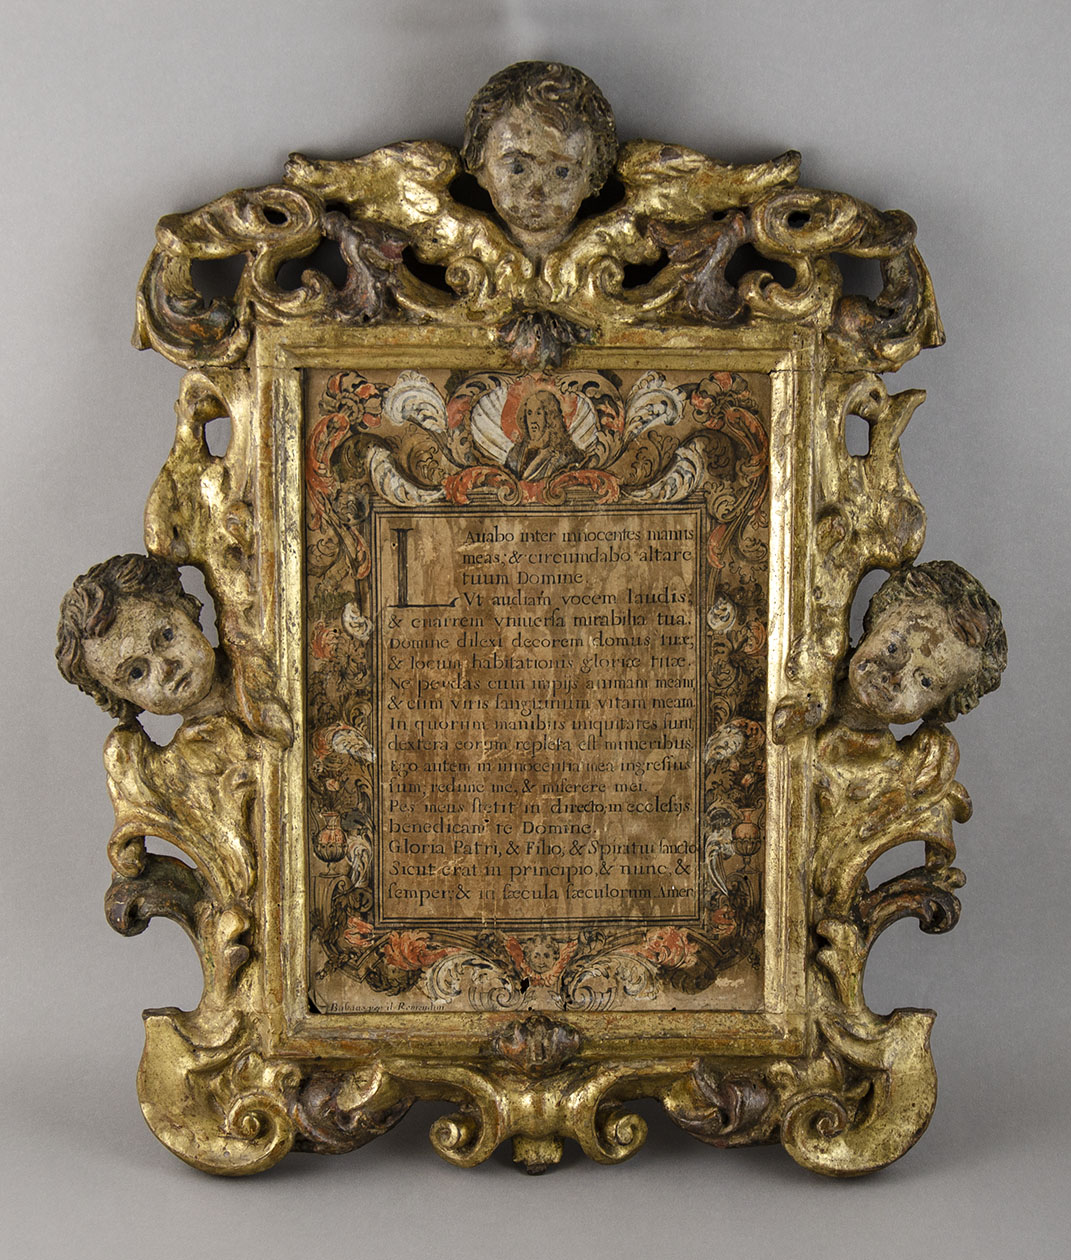 Lauabo inter innocentes manus
meas: & circumdabo altare
tuum Domine.
Vt audiam vocem laudis:
& enarrem vniuersa mirabilia tua.
Domine dilexi decorem domus tuæ:
& locum habitationis gloriæ tuæ.
Ne perdas cum impijs animam meam
& cum viris sanguinum vitam meam
In quorum manibus iniquitates sunt
dextera eorum repleta est muneribus.
Ego autem in innocentia mea ingressus
sum, redime me, & miserere mei.
Pes meus stetit in directo, in ecclesijs
benedicam te Domine.
Gloria Patri, & Filio, & Spiritui sancto
Sicut erat in principio, & nunc, &
semper, & in sæcula sæculorum Amen